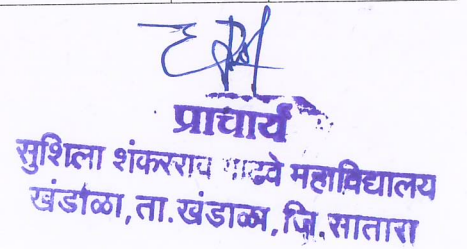 प्राचार्य
सुशिला शंकरराव गाढवे महाविद्यालय
खंडाळा, ता.खंडाळा, जि.सातारा